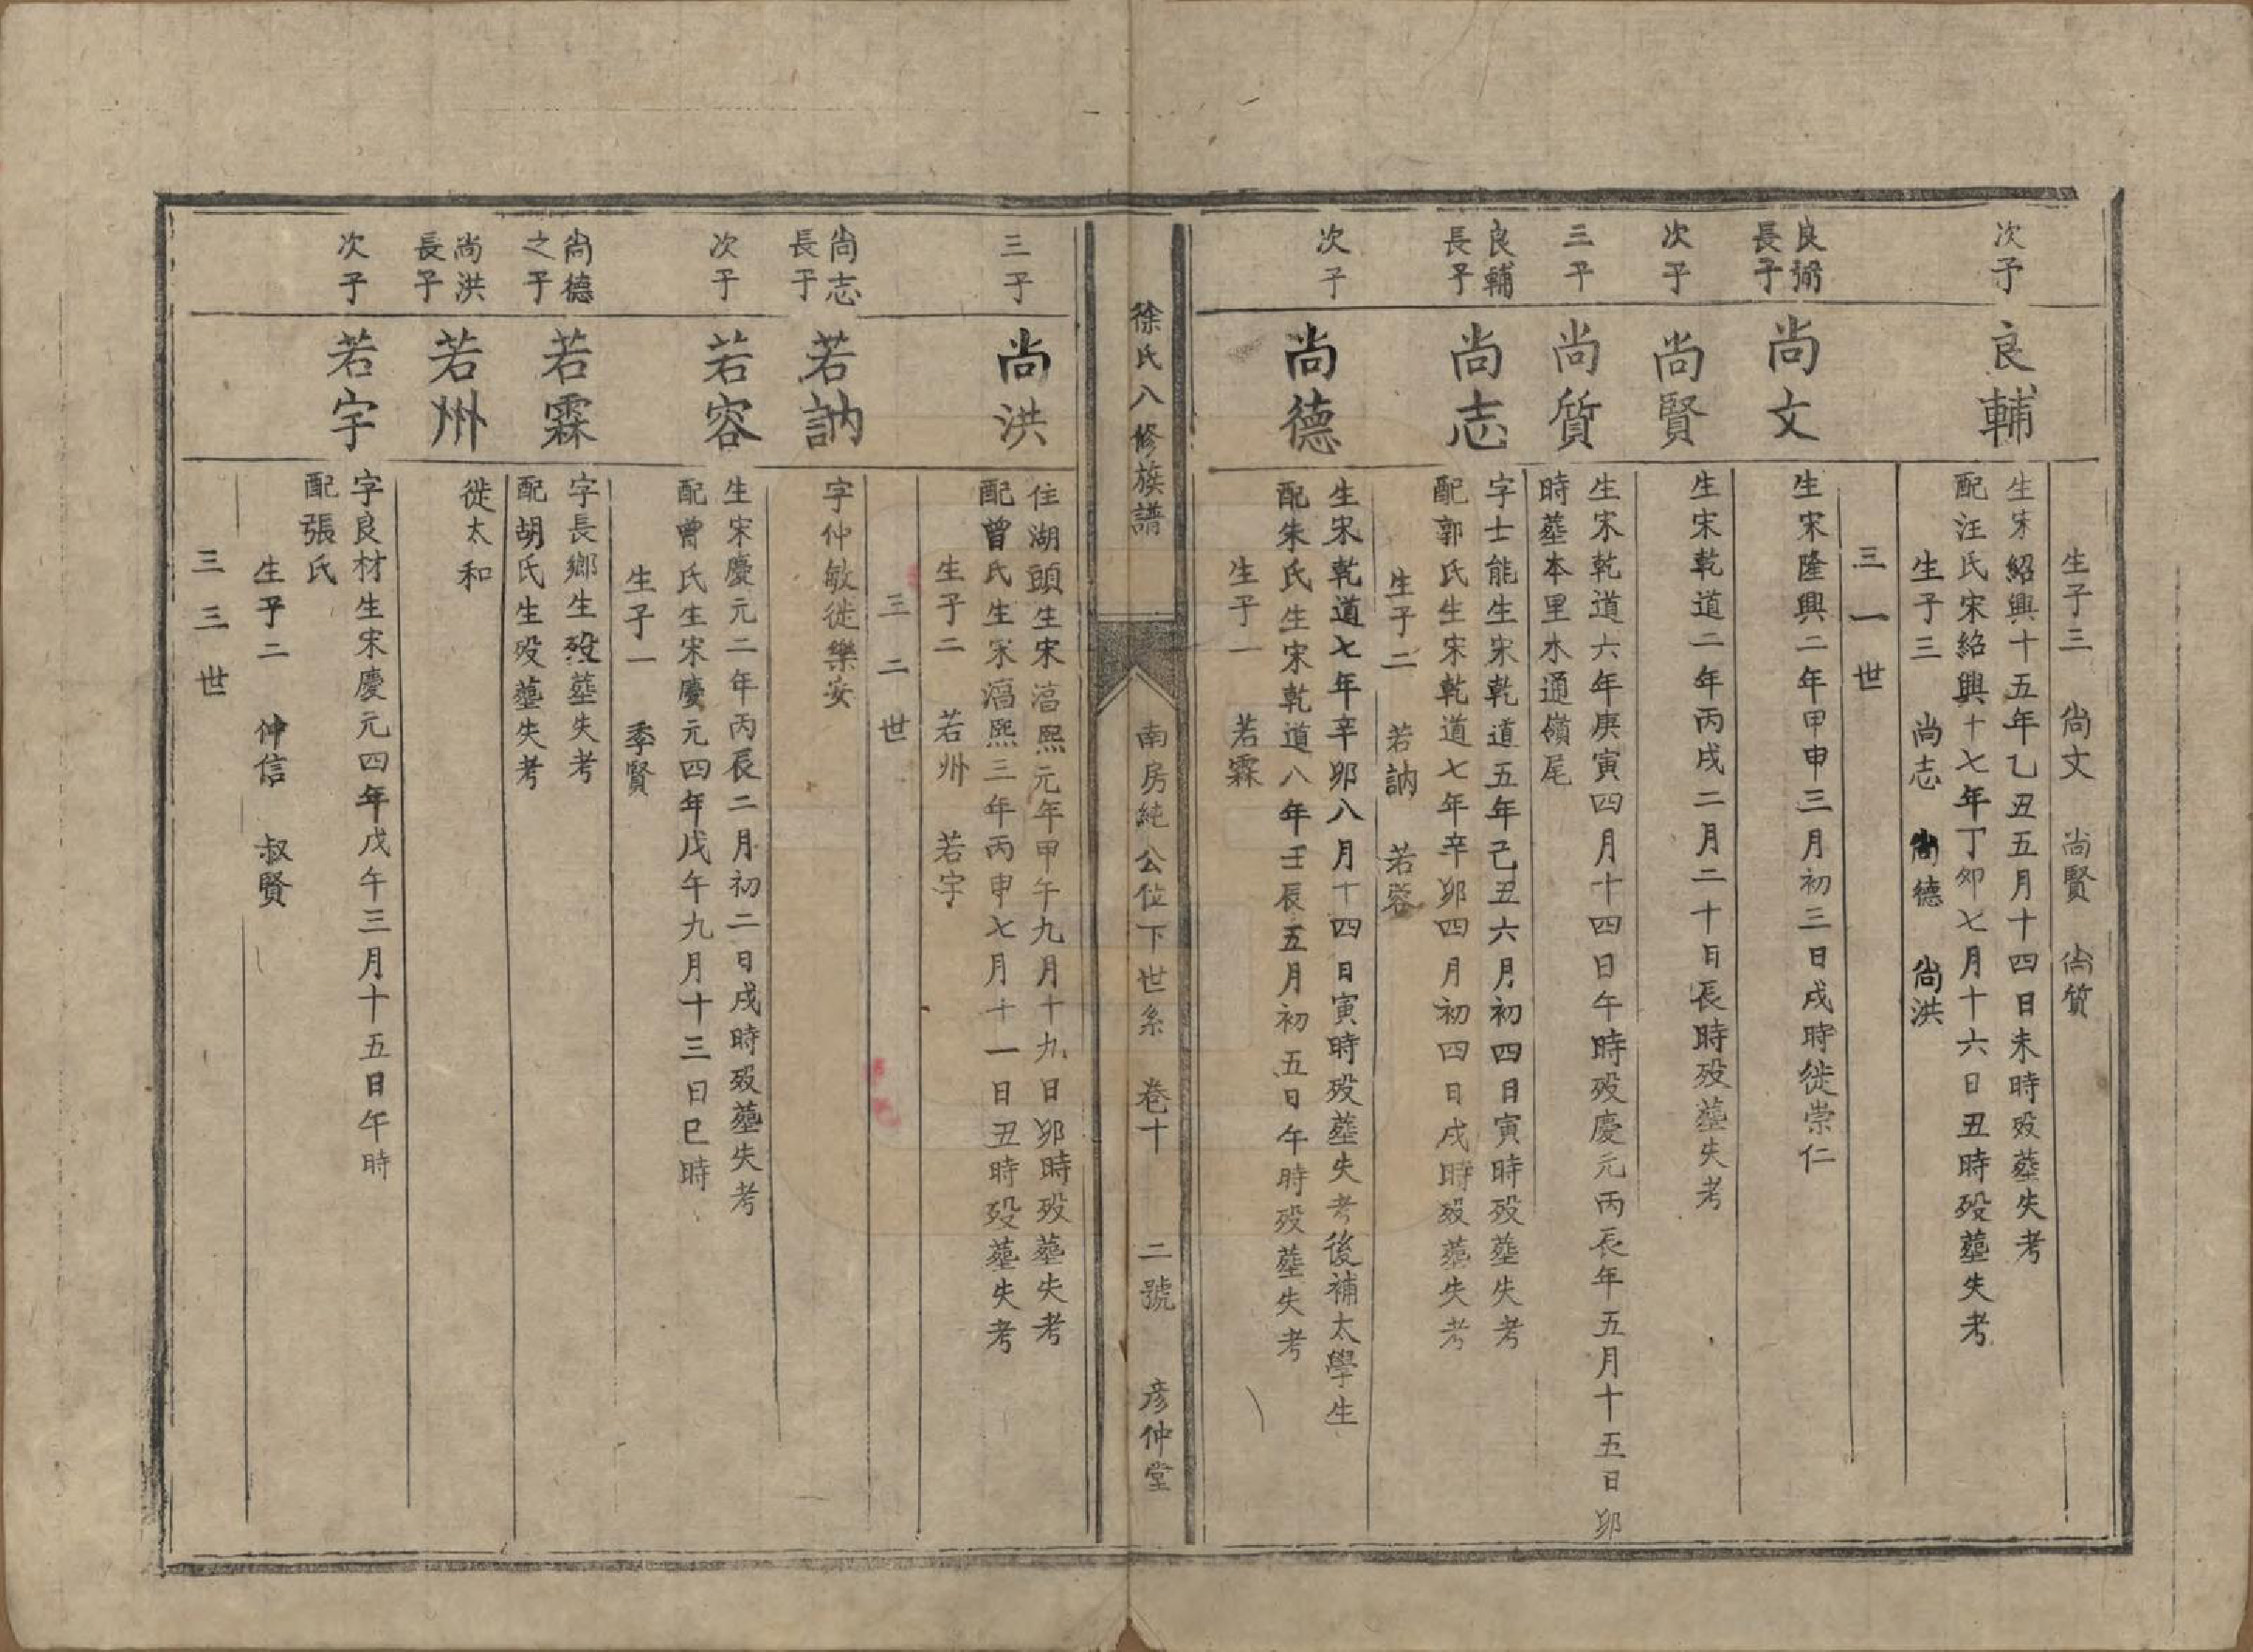 生子三 尚文 尚賢 尚質
次子 良輔
生宋紹興十五年乙丑五月十四日未時殁塟失考
配汪氏宋紹興十七年丁卯七月十六日丑時殁塟失考
生子三 尚志 尚德 尚洪
三一世
良弼長子 尚文
生宋隆興二年甲申三月初三日戌時徙崇仁
次子 尚賢
生宋乾道二年丙戌二月二十日長時殁塟失考
三子 尚質
生宋乾道六年庚寅四月十四日午時殁慶元丙長年五月十五日卯
時塟本里水通嶺尾
良輔長子 尚志
字士能生宋乾道五年己丑六月初四日寅時殁塟失考
配郭氏生宋乾道七年辛卯四月初四日戌時殁塟失考
生子二 若訥 若容
次子 尚德
生宋乾道七年辛卯八月十四日寅時殁塟失考後補太學生
配朱氏生宋乾道八年壬辰五月初五日午時殁塟失考
生子一 若霖
徐氏八修族譜 南房純公位下世系 卷十 二號 彦仲堂
三子 尚洪
住湖頭生宋湻熙元年甲午九月十九日卯時殁塟失考
配曾氏生宋湻熙三年丙申七月十一日丑時殁塟失考
生子二 若州 若宇
三二世
尚志長子 若訥
字仲敏徙樂安
次子 若容
生宋慶元二年丙辰二月初二日戌時殁塟失考
配曾氏生宋慶元四年戊午九月十三日巳時
生子一 季賢
尚德之子 若霖
字長鄉生殁塟失考
配胡氏生殁塟失考
尚洪長子 若州
徙太和
次子 若宇
字良材生宋慶元四年戊午三月十五日午時
配張氏
生子二 仲信 叔賢
三三世